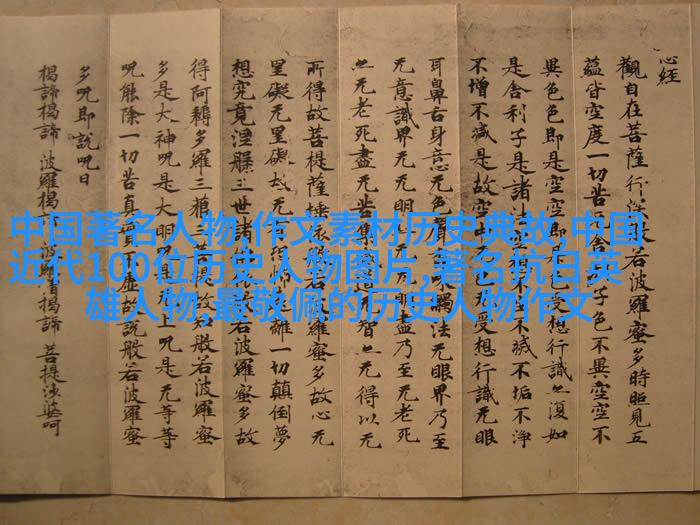 心経
觀自在菩薩行深般若波羅蜜多時照見五
蘊皆空度一切苦舍子色不異空空不
異色色即是空空即是受想行識亦復如
是舍利子是諸法不滅不垢不淨
不增不減是故空中受想行識无眼
耳鼻舌身意无色聲觸法无眼界乃至
无意識界无无明明盡乃至无老死
亦无老死盡无苦集智亦无得以无
所得故菩提薩埵依若波羅蜜多故心无
罣礙无罣礙故无離一切顛倒夢
想究竟涅槃三世諸若波羅蜜多故
得阿耨多羅三藐三菩故知般若波羅蜜
多是大神呪是大明上呪是无等等
呪能除一切苦真實不虛故說般若波羅蜜
多呪即說呪曰
揭諦揭諦 波羅揭 揭諦 菩提娑婆呵
中国著名人物,作文素材历史典故,中国
近代100位历史人物图片,著名抗日英
雄人物,最敬佩的历史人物作文